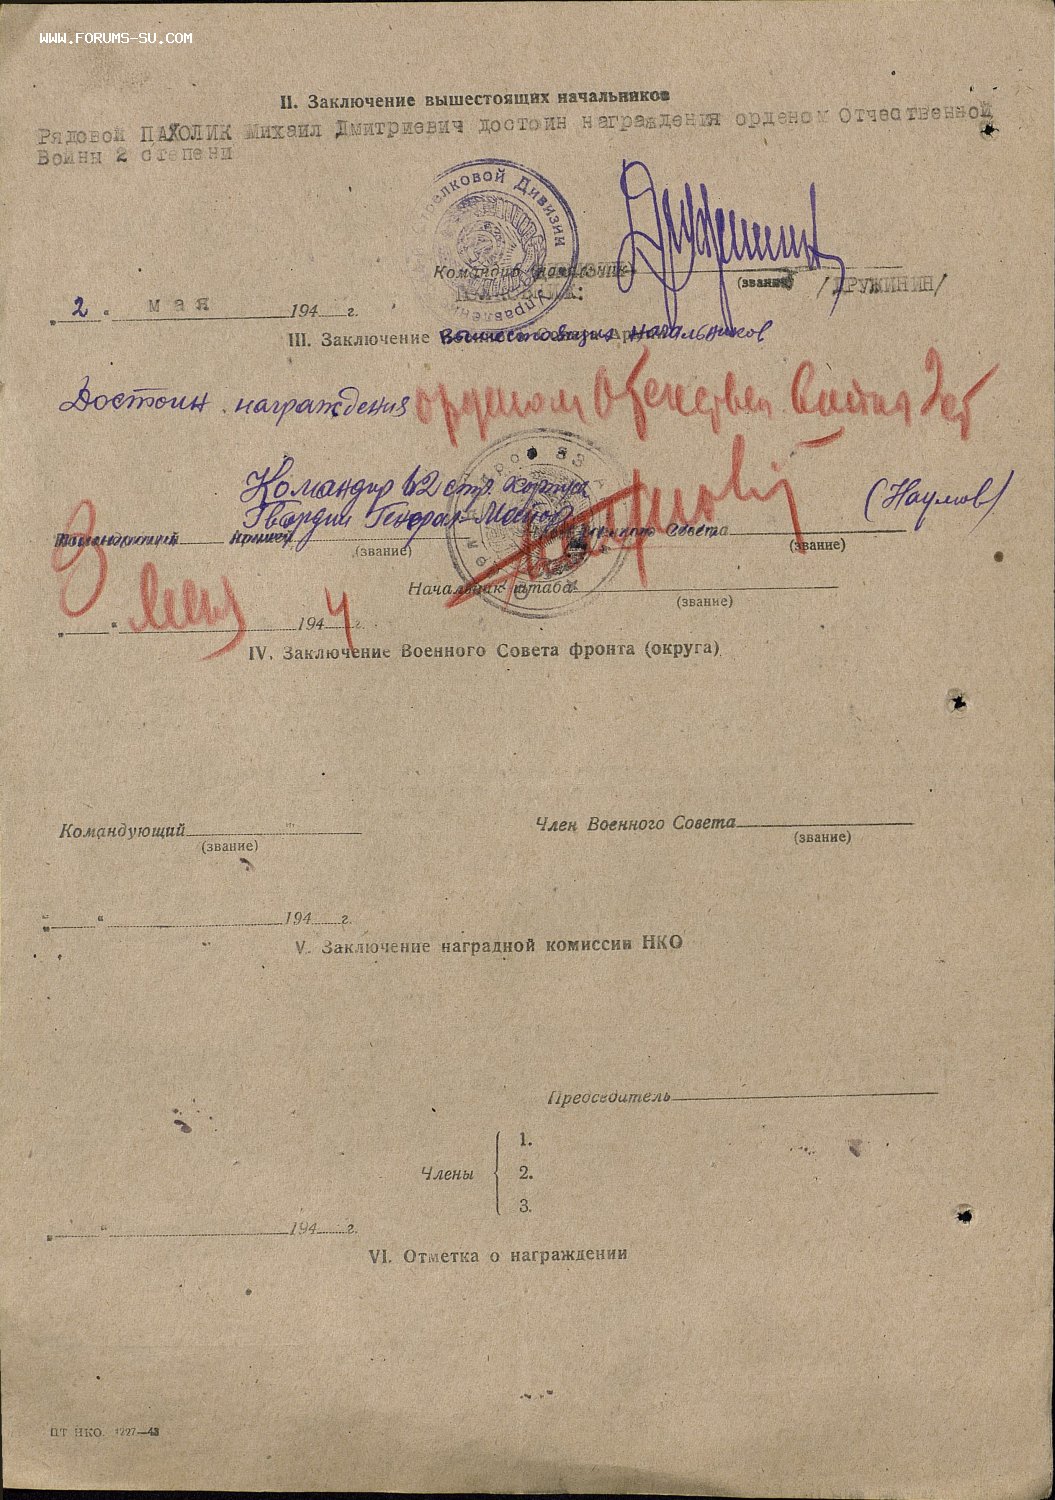 WWW.FORUMS-SU.COM
II. Заключение вышестоящих начальников
Рядовой ПАХОЛИК Михаил Дмитриевич достоин награждения орденом Отчественной
Войны 2 степени
Стрелковой Дивизии
Управление
Командир (начальник)
(звание) /ДРУЖИНИН/
" 2 " мая 194 г.
III. Заключение Вышестоящих начальников
Достоин награждения орденом Отечествен войны 2 ст
Командир 62 стр. Корпуса
Гвардии Генерал-Майор (Наумов)
Совета
(звание) (звание)
Начальник штаба
(звание)
3 мая
" " 194 4 г.
IV. Заключение Военного Совета фронта (округа)
Командующий Член Военного Совета
(звание) (звание)
" " 194 г.
V. Заключение наградной комиссии НКО
Председатель
1.
Члены 2.
3.
" " 194 г.
VI. Отметка о награждении
ЦТ НКО. 1227—43